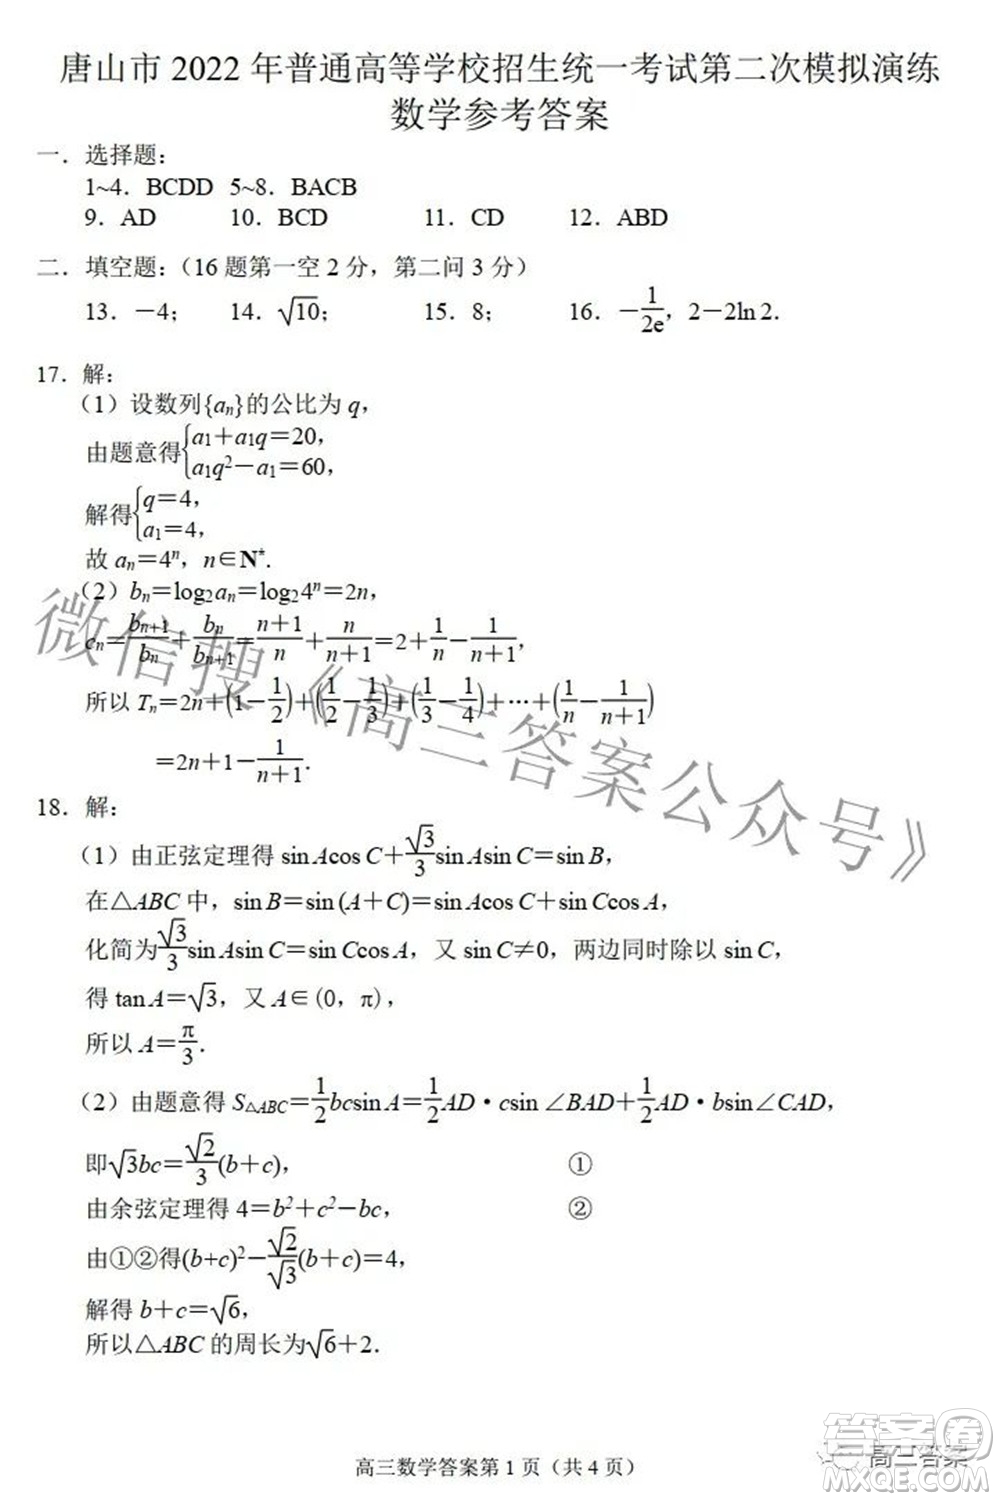 唐山市 2022 年普通高等学校招生统一考试第二次模拟演练
数学参考答案
一．选择题：
1~4．BCDD 5~8．BACB
9．AD 10．BCD 11．CD 12．ABD
二．填空题：（16 题第一空 2 分，第二问 3 分）
13．－4； 14．√10； 15．8； 16．－1/(2e)，2－2ln 2．
17．解：
（1）设数列{aₙ}的公比为 q，
由题意得{a₁＋a₁q＝20，
a₁q²－a₁＝60，
解得{q＝4，
a₁＝4，
故 aₙ＝4ⁿ，n∈N*．
（2）bₙ＝log₂aₙ＝log₂4ⁿ＝2n，
cₙ＝bₙ₊₁/bₙ＋bₙ/bₙ₊₁＝(n＋1)/n＋n/(n＋1)＝2＋1/n－1/(n＋1)，
所以 Tₙ＝2n＋(1－1/2)＋(1/2－1/3)＋(1/3－1/4)＋…＋(1/n－1/(n＋1))
＝2n＋1－1/(n＋1)．
18．解：
（1）由正弦定理得 sin Acos C＋√3/3 sin Asin C＝sin B，
在△ABC 中，sin B＝sin (A＋C)＝sin Acos C＋sin Ccos A，
化简为√3/3 sin Asin C＝sin Ccos A，又 sin C≠0，两边同时除以 sin C，
得 tan A＝√3，又 A∈(0，π)，
所以 A＝π/3．
（2）由题意得 S△ABC＝1/2 bcsin A＝1/2 AD·csin ∠BAD＋1/2 AD·bsin∠CAD，
即√3bc＝√2/3(b＋c)， ①
由余弦定理得 4＝b²＋c²－bc， ②
由①②得(b+c)²－√2/√3(b＋c)＝4，
解得 b＋c＝√6，
所以△ABC 的周长为√6＋2．
高三数学答案第 1 页（共 4 页）
微信搜《高三答案公众号》
高三答案
答案圈
MXQE.COM